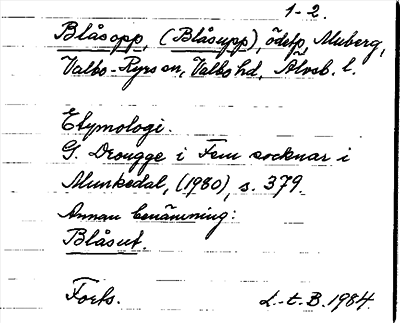 1-2.
Blåsopp, (Blåsupp), ödetp, Muberg,
Valbo-Ryrs sn, Valbo hd, Älvsb. l.
Etymologi.
G. Drougge i Fem socknar i
Munkedal, (1980), s. 379.
Annan benämning:
Blåsut.
Forts.
L.-t. B. 1984.